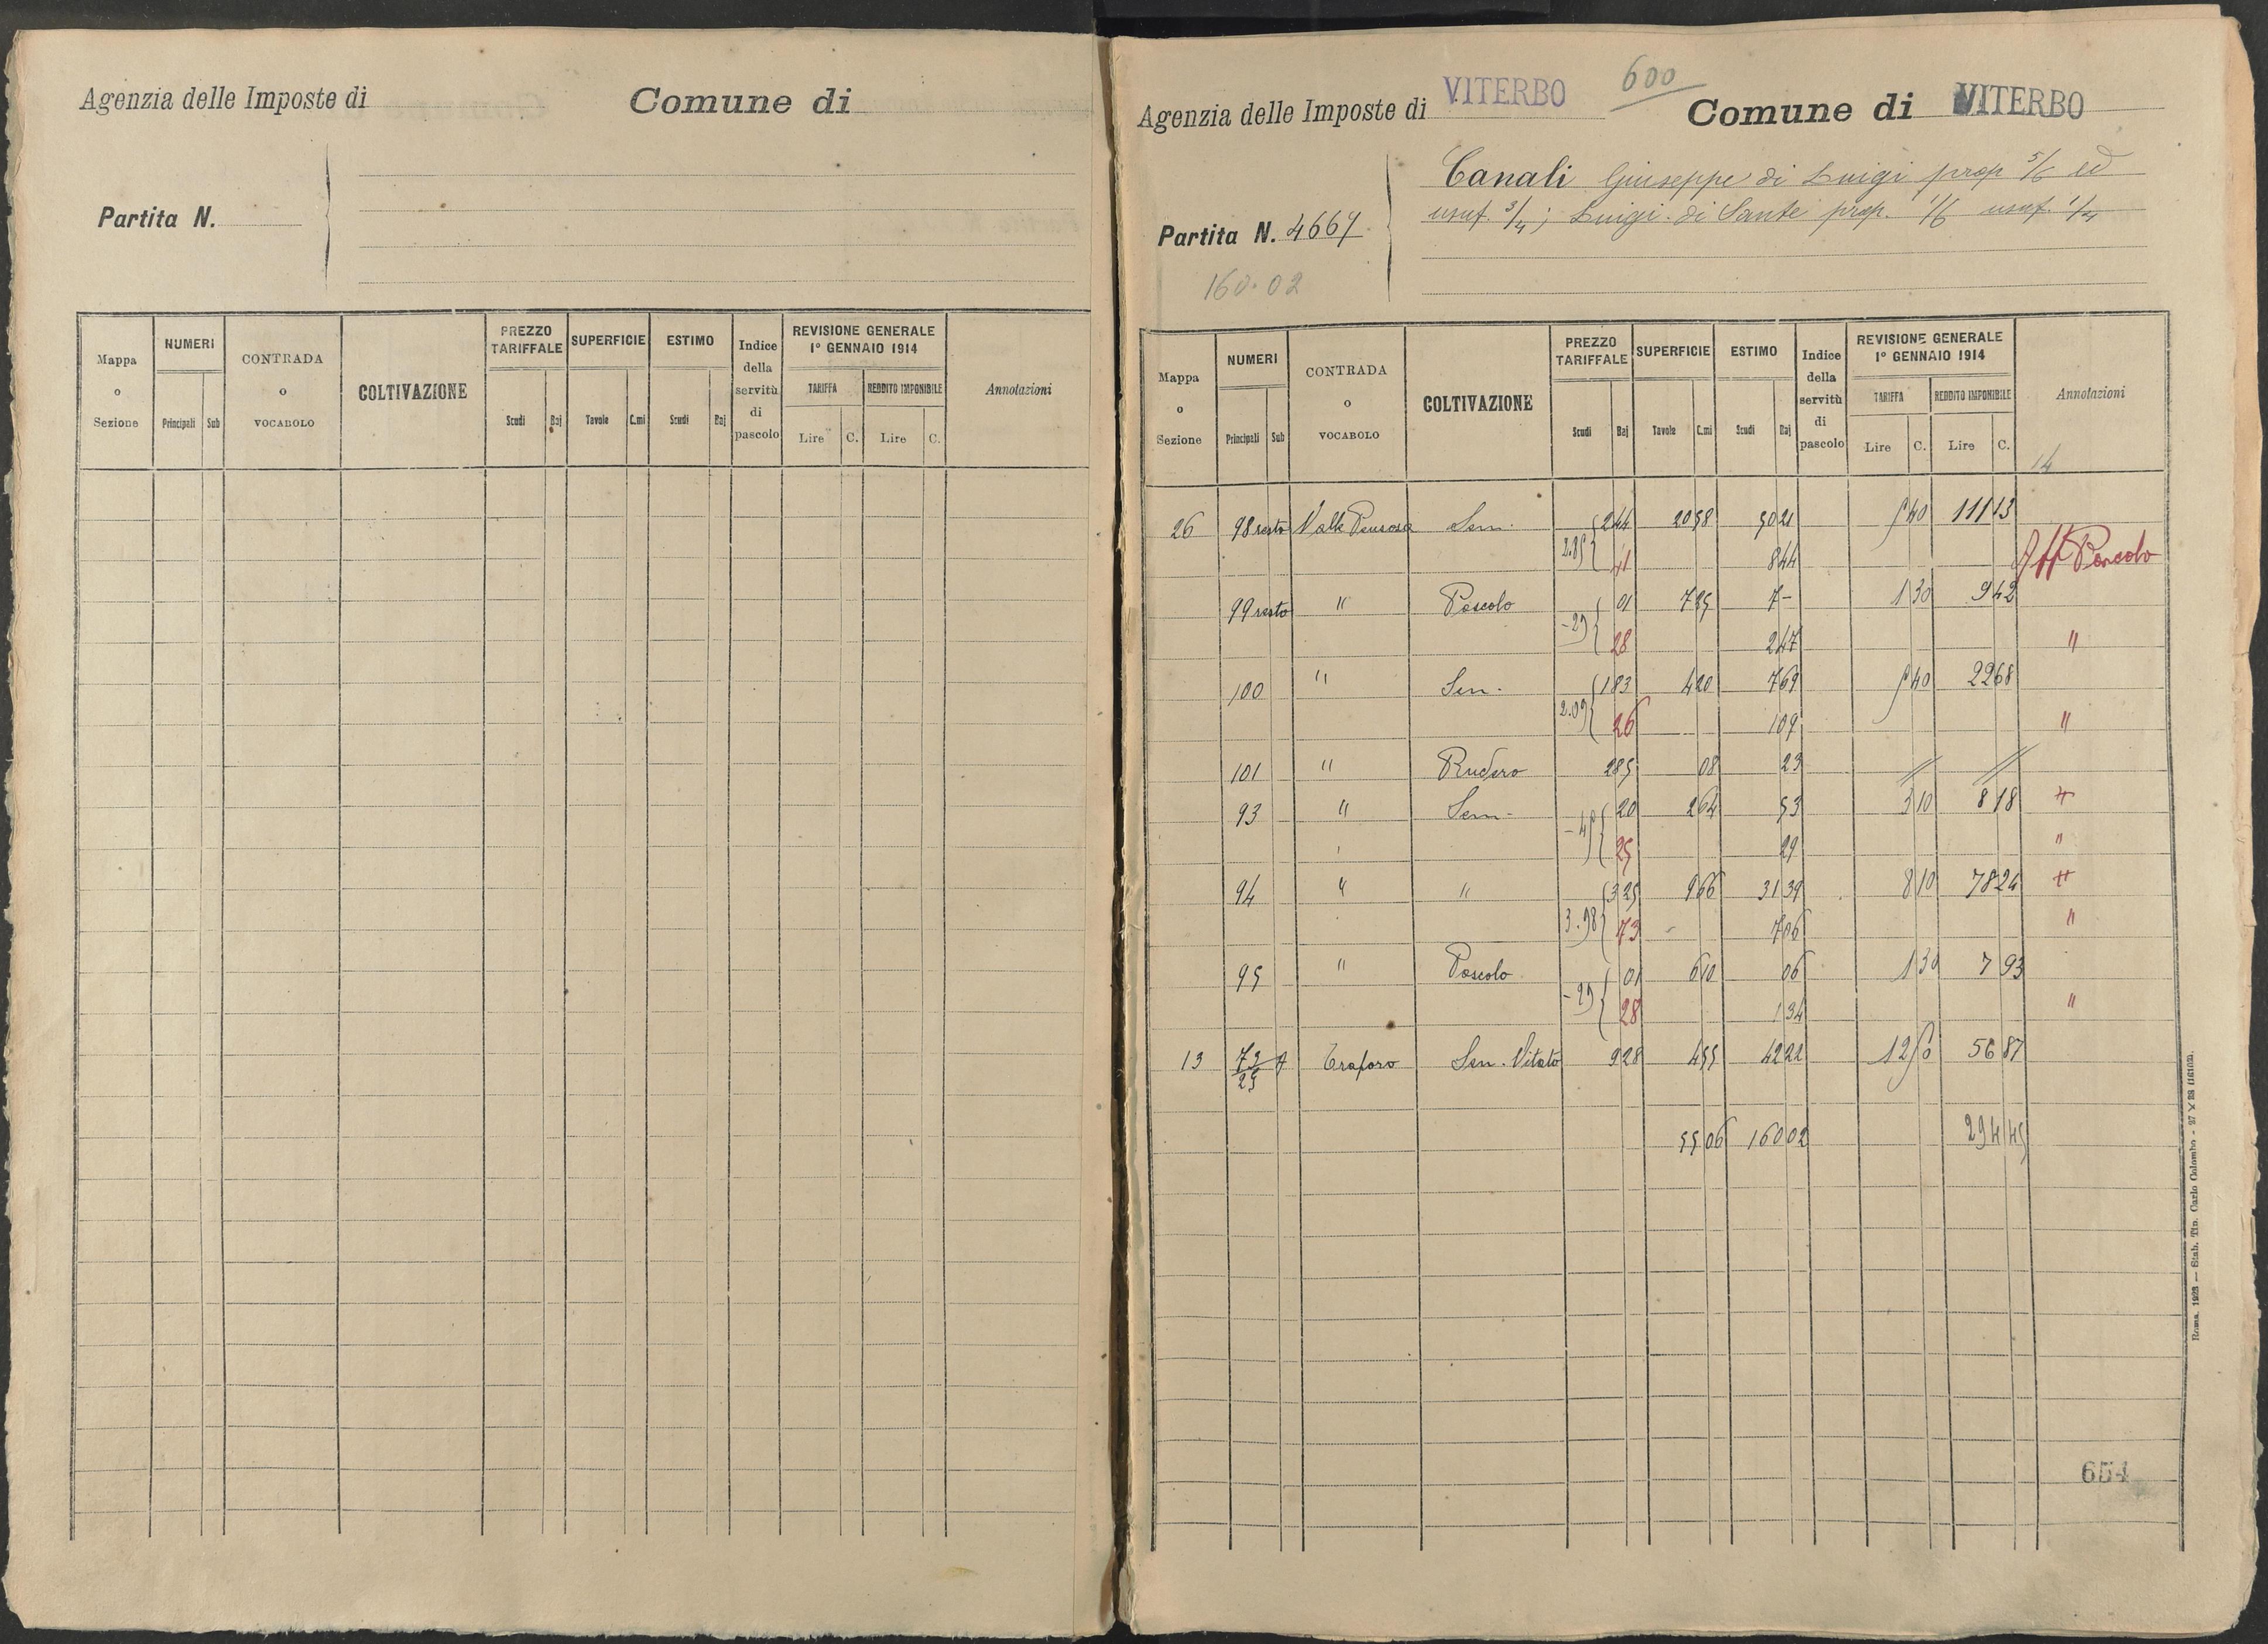 Agenzia delle Imposte di
Comune di
Partita N.
Mappa o Sezione
NUMERI
Principali Sub
CONTRADA o VOCABOLO
COLTIVAZIONE
PREZZO TARIFFALE
Scudi Baj
SUPERFICIE
Tavole C.mi
ESTIMO
Scudi Baj
Indice della servitù di pascolo
REVISIONE GENERALE
1° GENNAIO 1914
TARIFFA REDDITO IMPONIBILE
Lire C. Lire C.
Annotazioni
600
Agenzia delle Imposte di VITERBO
Comune di VITERBO
Canali Giuseppe di Luigi prop 5/6 ed
usuf. 3/4; Luigi di Sante prop. 1/6 usuf. 1/4
Partita N. 4667
160.02
Mappa o Sezione
NUMERI
Principali Sub
CONTRADA o VOCABOLO
COLTIVAZIONE
PREZZO TARIFFALE
Scudi Baj
SUPERFICIE
Tavole C.mi
ESTIMO
Scudi Baj
Indice della servitù di pascolo
REVISIONE GENERALE
1° GENNAIO 1914
TARIFFA REDDITO IMPONIBILE
Lire C. Lire C.
Annotazioni
14
26 98 resto Valle Sem. 2 44 20 58 50 21 5 40 111 13
2.85 41 8 44 Aff Pascolo
99 resto " Pascolo 01 7 25 7 - 1 30 9 42
-29 28 2 47 "
100 " Sem. 1 83 4 20 7 69 5 40 22 68
2.09 26 1 09 "
101 " Rudero 2 85 08 23 // //
93 " Sem. 20 2 64 53 3 10 8 18 #
-45 25 29 "
94 " " 3 25 9 66 31 39 8 10 78 24 #
3.98 73 7 06 "
95 " Pascolo 01 6 10 06 1 30 7 93
-29 28 1 34 "
13 Traforo Sem. Vitato 9 28 4 55 42 22 12 50 56 87
55 06 160 02 294 45
654
Roma, 1923 — Stab. Tip. Carlo Colombo - 27 X 23 (16102).